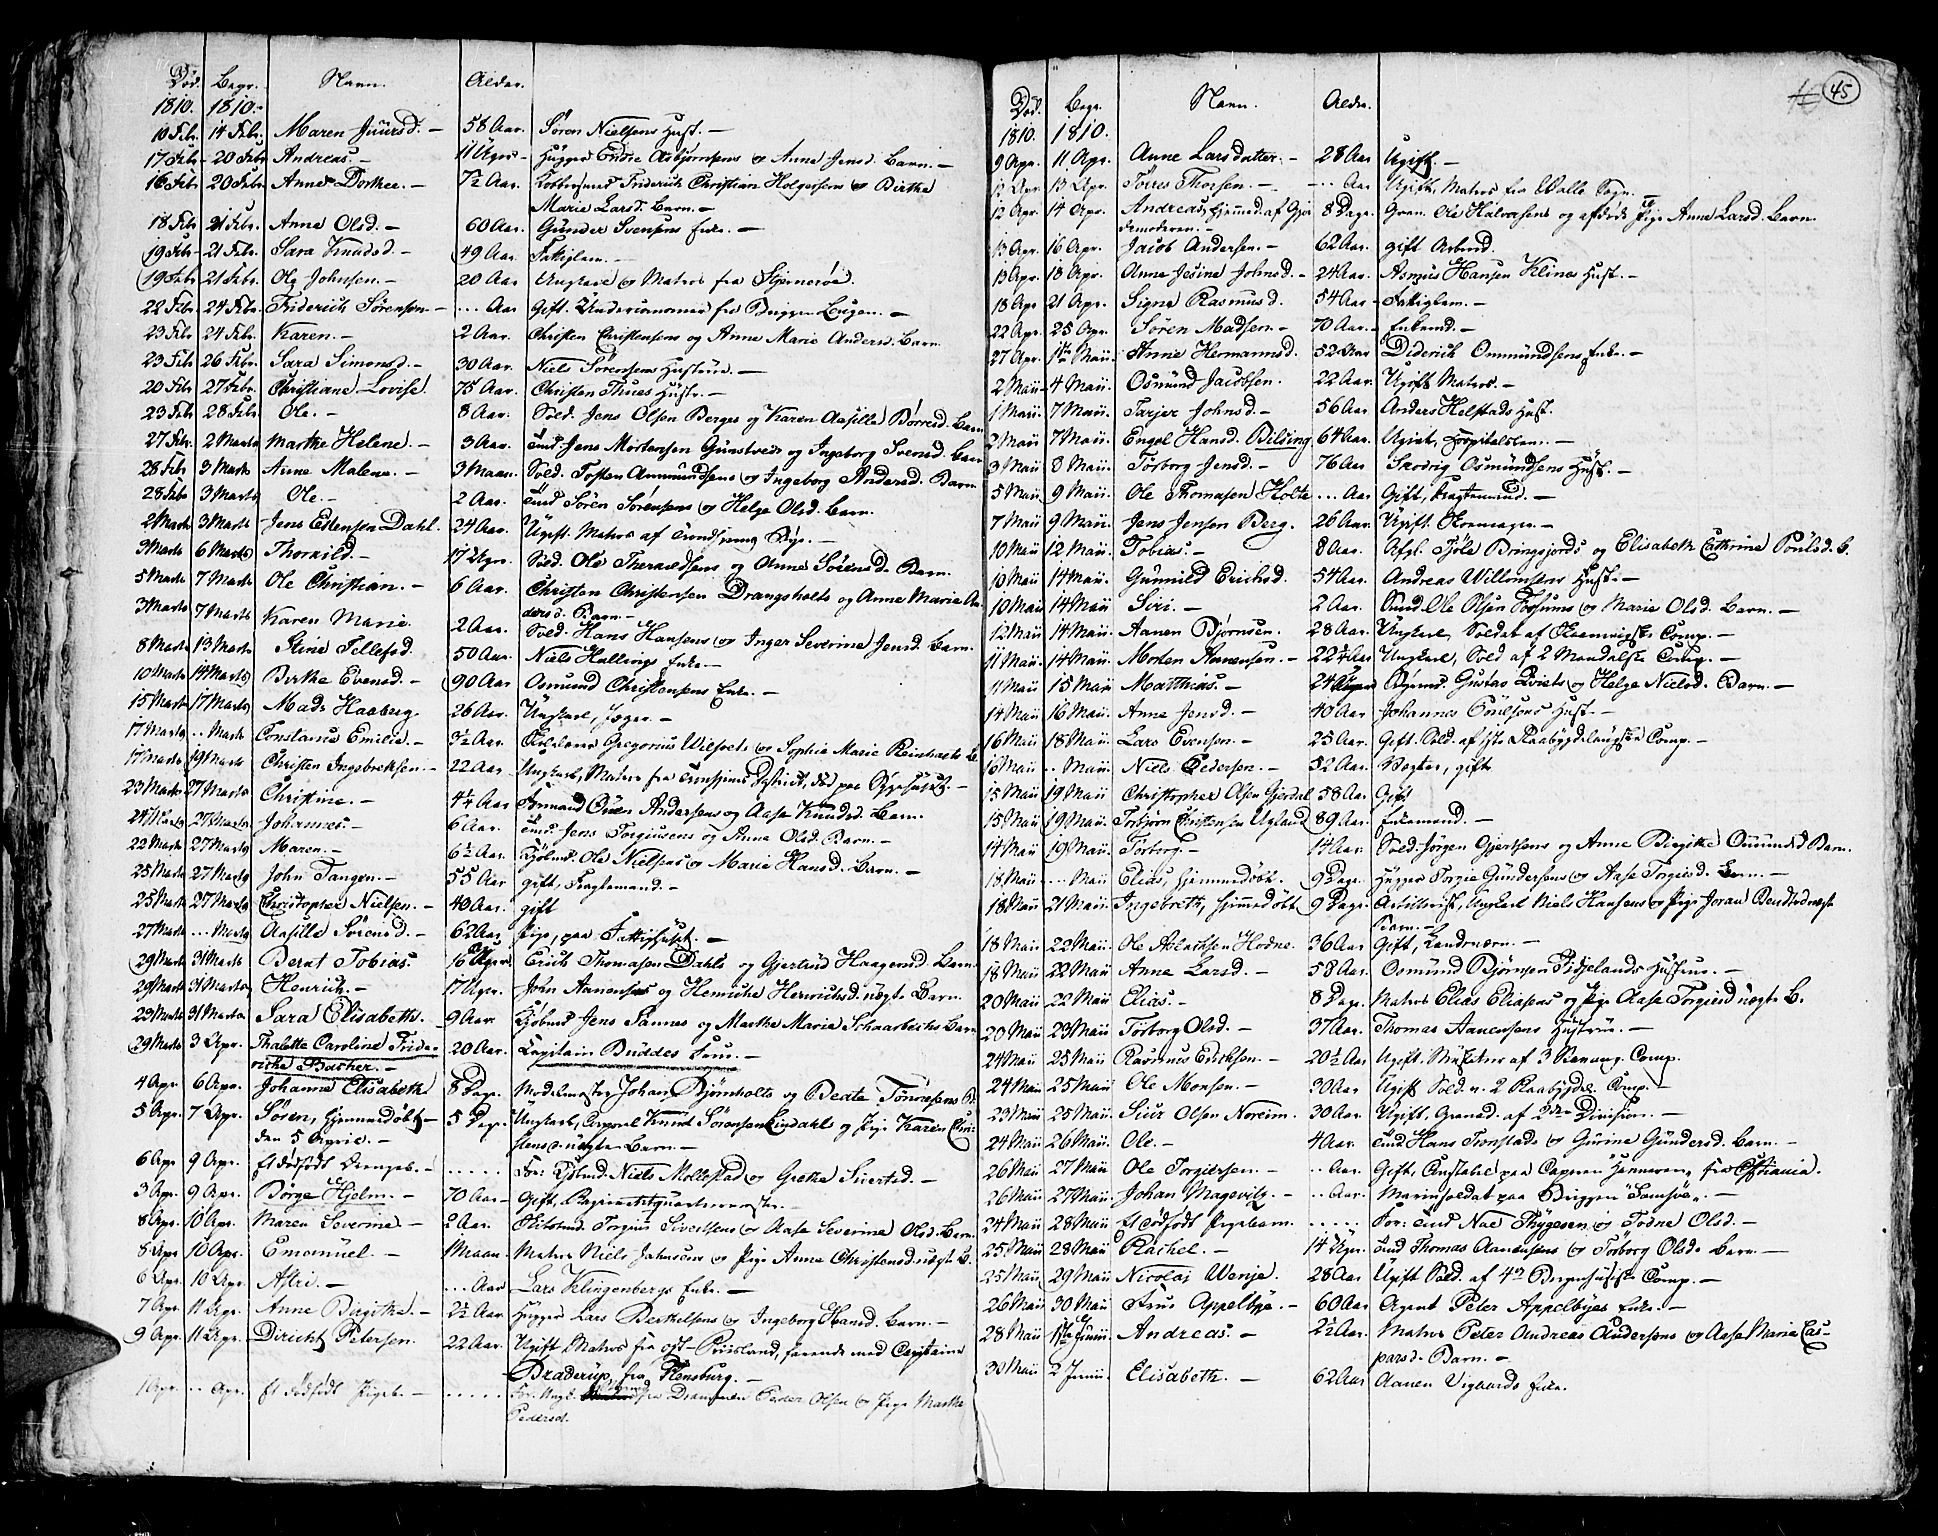 Död. Begr. Navn. Alder.
1810. 1810.
10 Febr. 14 Febr. Maren Juursd. - 58 Aar. Sören Nielsens Hust. -
17 Febr. 20 Febr. Andreas. - 11 Uger. Hugger Endre Asbjörnsens og Anne Jensd. Barn. -
16 Febr. 20 Febr. Anne Dorthea. - 7½ Aar. Kobbersmed Friderich Christian Holgersens og Birthe
Marie Larsd. Barn. -
18 Febr. 21 Febr. Anne Olsd. - 60 Aar. Gunder Svensens Enke. -
19 Febr. 21 Febr. Sara Knudsd. - 49 Aar. Fattiglem. -
19 Febr. 21 Febr. Ole Johnsen. - 20 Aar. Ungkarl og Matros fra Hjerneröe.
22 Febr. 24 Febr. Friderich Sörensen. - ... Aar. Gift. Undercanoneer fra Briggen Lougen. -
23 Febr. 24 Febr. Karen. - 2 Aar. Christen Christensens og Anne Marie Andersd. Barn
23 Febr. 26 Febr. Sara Simonsd. - 30 Aar. Niels Sörensens Hustrue. -
20 Febr. 27 Febr. Christiane Lovise. 75 Aar. Christen Thues Hustr. -
23 Febr. 28 Febr. Ole. - 8 Aar. Sold. Jens Olsen Berges og Karen Aasille Börresd. Barn
27 Febr. 2 Marts Marthe Helene. - 3 Aar. Jens Mortensen Gunstveds og Ingeborg Svensd. Barn
28 Febr. 3 Marts Anne Malene. - 3 Maan. Sold. Tosten Aanmundsens og Ingeborg Andersd. Barn
28 Febr. 3 Marts Ole. - 2 Aar. Sören Sörensens og Helge Olsd. Barn.
2 Marts 3 Marts Jens Estensen Dahl. 24 Aar. Ugift Matros af Trondhjems Bye. -
3 Marts 6 Marts Thorkild. - 17 Uger. Sold. Ole Therkeldsens og Anne Sörensd. Barn.
5 Marts 7 Marts Ole Christian. - 6 Aar. Christen Christensen Drangsholts og Anne Marie An-
dersd. Barn. -
3 Marts 7 Marts Karen Marie 2 Aar. Sold. Hans Hansens og Inger Severine Jensd. Barn.
8 Marts 13 Marts Stine Tellefsd. 50 Aar. Niels Hallings Enke. -
10 Marts 14 Marts Birthe Evensd. - 90 Aar. Osmund Christensens Enke. -
15 Marts 17 Marts Mads Haaberg. 26 Aar. Ungkarl, Jæger. -
17 Marts .. Marts Constance Emilie. - 3½ Aar. Gregorius Wilsoets og Sophie Marie Reinhardts B.
17 Marts 19 Marts Christen Ingebrethsen. - 22 Aar. Ungkarl, Matros fra District, död paa Sygehuset. -
23 Marts 27 Marts Christine. - 4¼ Aar Ouen Andersens og Aase Knudsd. Barn.
24 Marts 27 Marts Johannes. - 6 Aar. Jens Torgiusens og Anne Olsd. Barn. -
22 Marts 27 Marts Maren. - 6½ Aar. Kjöbmd. Ole Nielsens og Marie Hansd. Barn. -
25 Marts 27 Marts John Tangen. - 55 Aar gift, Fragtemand. -
25 Marts 27 Marts Christopher Nielsen. - 40 Aar. gift
27 Marts ... Marts Aasille Sörensd. - 62 Aar. Pige, paa Fattighuset. -
29 Marts 31 Marts Bernt Tobias. 16 Uger. Erich Thomasen Dahls og Gjertrud Haagensd. Barn.
29 Marts 31 Marts Henrich. - 17 Uger. John Aanensens og Henriche Henrichsd. uægte Barn.
29 Marts 31 Marts Sara Elisabeth. - 9 Aar. Kjöbmd. Jens Sannes og Marthe Marie Schaarbechs Barn
29 Marts 3 Apr. Thalette Caroline Frider- 20 Aar. Capitain Buddes Frue. -
riche Bacher. -
4 Apr. 6 Apr. Johanne Elisabeth 8 Dage. Modelmester Johan Björnholts og Beate Tönnesens B.
5 Apr. 7 Apr. Sören, hjemmedöbt 5 Dage. Ungkarl, Corporal Knud Sörensen Lindahls og Pige Karen Chri-
den 5 April. - stensd. uægte Barn. -
6 Apr. 9 Apr. Et dödfödt Drengeb. - ..... For: Kjöbmd. Niels Mollestad og Grethe Sivertsd. -
3 Apr. 9 Apr. Börge Hjelm. - 70 Aar. Gift, Regimentsquartermester. -
8 Apr. 10 Apr. Maren Severine. - 2 Aar. Torgius Sivertsens og Aase Severine Olsd. Barn.
8 Apr. 10 Apr. Emanuel. - 1 Maan. Matros Niels Johnsens og Pige Anne Christensd. uægte B.
6 Apr. 10 Apr. Astri. - ... Aar Lars Klingenbergs Enke. -
7 Apr. 11 Apr. Anne Birgithe. - 2½ Aar. Hugger Lars Berthelsens og Ingeborg Hansd. Barn. -
9 Apr. 11 Apr. Dirichs Petersen. 22 Aar. Ugift Matros fra Ost-Friisland, farende med Capitaine
Braderup, fra Flensburg. -
1 Apr. .. Apr. Et dödfödt Pigeb. - ..... For: Ungk. fra Drammen Peder Olsen og Pige Marthe
Pedersd.
45
Död. Begr. Navn. Alder.
1810. 1810.
9 Apr. 11 Apr. Anne Larsdatter. - 28 Aar Ugift. -
12 Apr. 13 Apr. Torres Thorsen. - ... Aar Ugift, Matros fra Walle Sogn. -
12 Apr. 14 Apr. Andreas, hjemmed. af Gjor- 8 Dage. Gren. Ole Halvorsens og afdöde Pige Anne Larsd. Barn.
demoderen. -
13 Apr. 16 Apr. Jacob Andersen. - 62 Aar. gift Arbmd. -
13 Apr. 18 Apr. Anne Jesine Johnsd. - 24 Aar. Asmus Hansen Klines Hust. -
18 Apr. 21 Apr. Signe Rasmusd. 54 Aar Fattiglem. -
22 Apr. 25 Apr. Sören Madsen. - 70 Aar. Enkemd. -
27 Apr. 1ste Maii. Anne Hermannsd. 52 Aar Diderich Ommundsens Enke. -
2 Maii 4 Maii. Osmund Jacobsen. 22 Aar. Ugift Matros. -
1 Maii. 7 Maii. Tarjer Johnsd. - 56 Aar. Anders Helstads Hust.
2 Maii 7 Maii. Engel Hansd. Bilding 64 Aar. Ugivt, Hospitalslem. -
3 Maii 8 Maii. Torborg Jensd. - 76 Aar Skodvig Osmundsens Hust. -
5 Maii 9 Maii. Ole Thomasen Holte ... Aar Gift, Fragtemand. -
7 Maii 9 Maii. Jens Jensen Berg. 26 Aar. Ugift. Skomager. -
10 Maii 12 Maii. Tobias. - 8 Aar. Afg. Tjöls Bringsjords og Elisabeth Cathrine Poulsd. B.
10 Maii 14 Maii. Gunnild Erichsd. 54 Aar. Andreas Willomsens Hust. -
10 Maii 14 Maii. Siri. - 2 Aar. Ole Olsen Fossums og Marie Olsd. Barn. -
12 Maii 14 Maii. Aanen Björnsen. 28 Aar. Ungkarl, Soldat af Comp. -
11 Maii. 14 Maii. Morten Aanensen. - 22½ Aar Ungkarl, Sold. af 2 Mandalske Comp. -
11 Maii 15 Maii Matthias. - 24 Uger Gustav Qviets og Helge Nielsd. Barn. -
14 Maii 16 Maii. Anne Jensd. - 40 Aar. Johannes Poulsens Hust. -
16 Maii 18 Maii. Lars Evensen. - 25 Aar. Gift. Sold. af 1ste Raabygdelaugske Comp. -
16 Maii .. Maii. Niels Pedersen. - 52 Aar. Vægter, gift
15 Maii 19 Maii Christopher Olsen Gjerdal 58 Aar. Gift
15 Maii 19 Maii. Torbjörn Christensen Ugland 89 Aar. Enkemand. -
14 Maii 19 Maii. Torborg. - 14 Aar Sold. Jörgen Gjertsens og Anne Birgithe Ommundsd. Barn.
18 Maii ... Maii Elias, hjemmedöbt. 9 Dage. Hugger Torgie Gundersens og Aase Torgiesd. Barn. -
18 Maii 21 Maii. Ingebreth, hjemmedöbt 9 Dage. Artillerist, Ungkarl Niels Hansens og Pige Joran Bendtsd. uægte
Barn. -
18 Maii 22 Maii. Ole Aslachsen Hodne. 36 Aar. Gift, Landværn. -
18 Maii 22 Maii Anne Larsd. - 58 Aar. Osmund Björnsen Fidjelands Hustrue. -
20 Maii 22 Maii Elias. - 8 Dage. Matros Elias Eliasens og Pige Aase Torgiesd. uægte B.
20 Maii 23 Maii. Torborg Olsd. - 37 Aar. Thomas Aanensens Hustrue. -
24 Maii 25 Maii Rasmus Erichsen. - 20½ Aar Ugift. af 3 Comp.
24 Maii 25 Maii Ole Monsen. - 30 Aar Ugift Sold. v. 2 Raabygdel. Comp. -
23 Maii 25 Maii Siur Olsen Noreim. 30 Aar. Ugift. Grened. af 2den Division. -
24 Maii 26 Maii Ole. - 4 Aar. Hans Tronstads og Gurine Gundersd. Barn. -
26 Maii 27 Maii Ole Torgiersen. - .. Aar. Gift, Constabel paa Caperen fra Christiania.
26 Maii 27 Maii Johan Magevitz. - .. Aar. Marinsoldat paa Briggen "Samsöe". -
24 Maii 28 Maii Et dödfödt Pigebarn. ..... For: Noe Thygesen og Todne Olsd. -
25 Maii 28 Maii Rachel. - 14 Uger. Thomas Aanensens og Torborg Olsd. Barn. -
25 Maii 29 Maii Nicolai Wenje. 28 Aar Ugift Sold. af 4de Bergenhusiske Comp. -
26 Maii 30 Maii Frue Appelbye. - 60 Aar Agent Peter Appelbyes Enke. -
28 Maii 1ste Junii Andreas. - 2½ Aar. Matros Peter Andreas Andersens og Aase Maria Cas-
parsd. Barn. -
30 Maii 2 Junii Elisabeth. - 62 Aar Aanen Vigaards Enke.